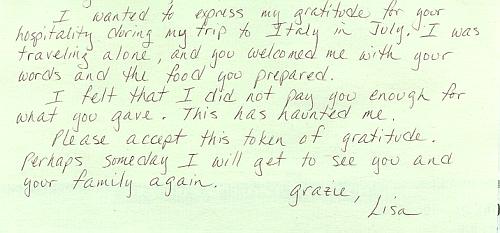 I wanted to express my gratitude for your
hospitality during my trip to Italy in July. I was
traveling alone, and you welcomed me with your
words and the food you prepared.
I felt that I did not pay you enough for
what you gave. This has haunted me.
Please accept this token of gratitude.
Perhaps someday I will get to see you and
your family again.
grazie,
Lisa